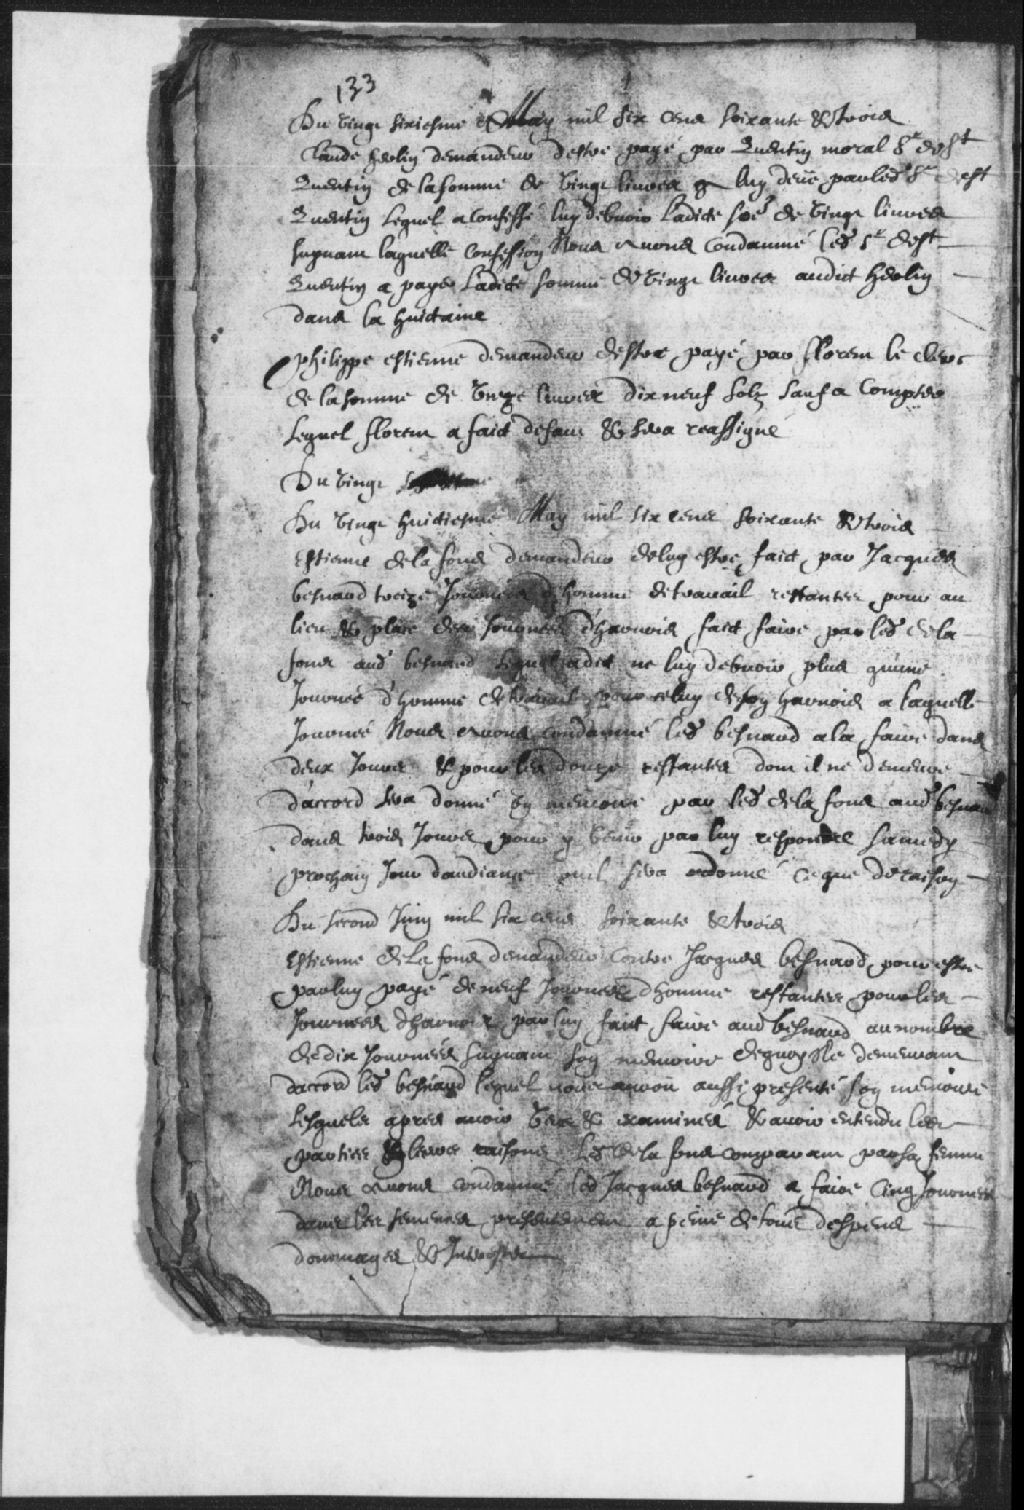 133
Du vingt sixiesme May mil six cens soixante & trois
Claude herbin demandeur destre payé par Quentin moral Sr de St
Quentin de la somme de vingt livres a luy deüe par led Sr de St
Quentin lequel a confessé luy debvoir ladicte soe de vingt livres
suyvant laquelle confession Nous avons condamné led Sr de St
Quentin a payer ladicte somme de vingt livres audict herbin
dans la huictaine
Philippe estienne demandeur destre payé par florent le clerc
de la somme de livres dix neuf solz sauf a compter
lequel florent a faict defaut & sera reassigné
Du vingt
Du vingt huictiesme May mil six cens soixante & trois
Estienne de la fons demandeur de luy estre faict par Jacques
besnard treize Journees d'homme de travail restantes pour au
lieu & place des Journees d'harnois faict faire par led de la
fons aud besnard lequel a dict ne luy debvoir plus qu'une
Journeé d'homme de travail pour celuy de son harnois a laquelle
Journeé Nous avons condamné led besnard a la faire dans
deux Jours & pour les douze restantes dont il ne demeure
d'accord sera donné un memoire par led de la fons aud besnard
dans trois Jours pour y venir par luy respondre samedy
prochain Jour daudiance ou il sera ordonné ce que de raison
Du second Juin mil six cens soixante & trois
Estienne de la fons demandeur contre Jacques besnard pour estre
par luy payé de neuf Journees d'homme restantes pour les
Journees d'harnois par luy faict faire aud besnard au nombre
de dix Journeés suyvant son memoire de quoy Ne demeurant
daccord led besnard lequel nous auroit aussi presenté son memoire
lesquels apres avoir veus & examinés & avoir entendu les
parties & leurs raisons led de la fons comparant par sa femme
Nous avons condamné led Jacques besnard a faire cinq Journees
dans les semences presentement a peine de tous despens
dommages & Interestz